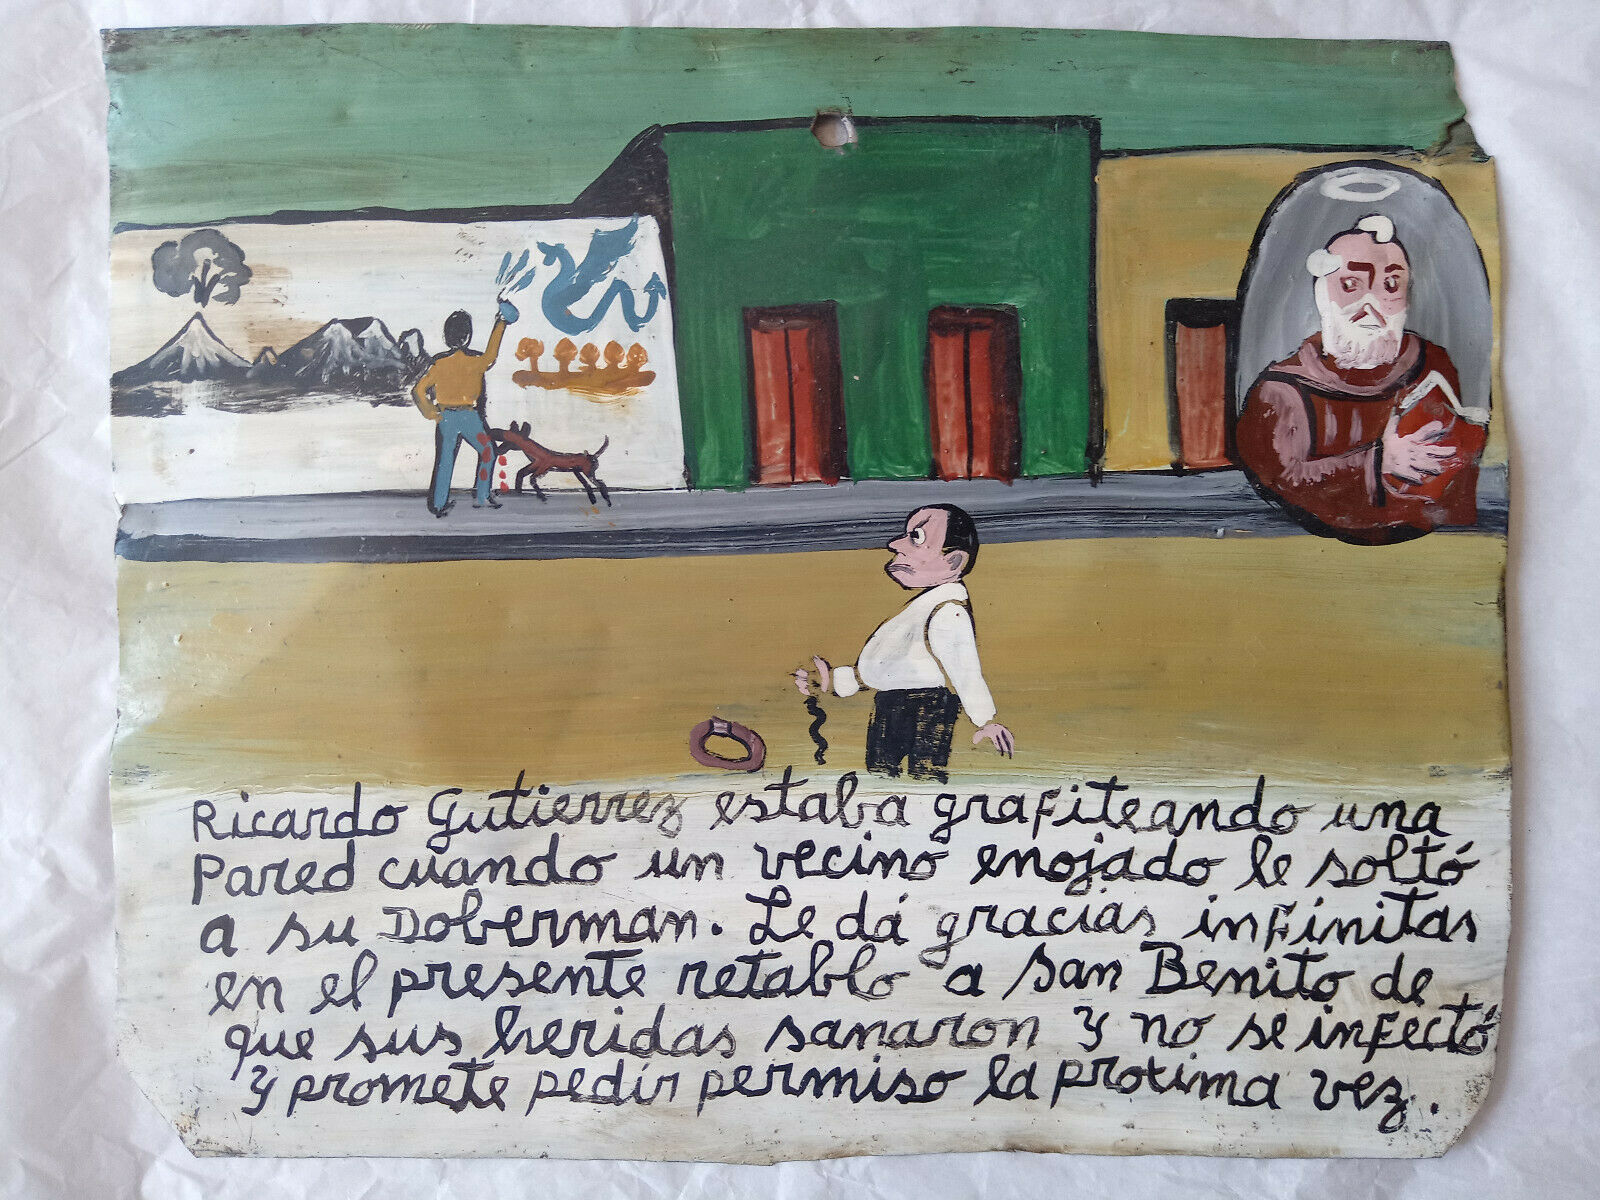 Ricardo Gutierrez estaba grafiteando una
Pared cuando un vecino enojado le soltó
a su Doberman. Le dá gracias infinitas
en el presente retablo a San Benito de
que sus heridas sanaron y no se infectó
y promete pedir permiso la proxima vez.